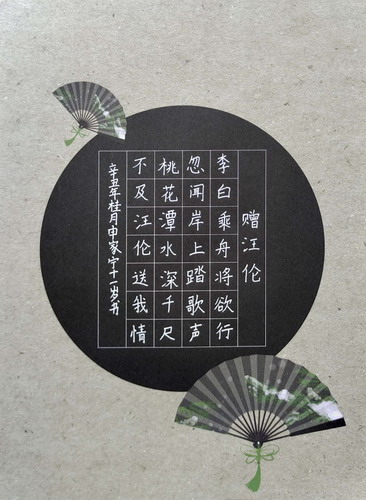 赠江伦
李白乘舟将欲行
忽闻岸上踏歌声
桃花潭水深千尺
不及江伦送我情
辛丑年桂月申家宁十一岁书